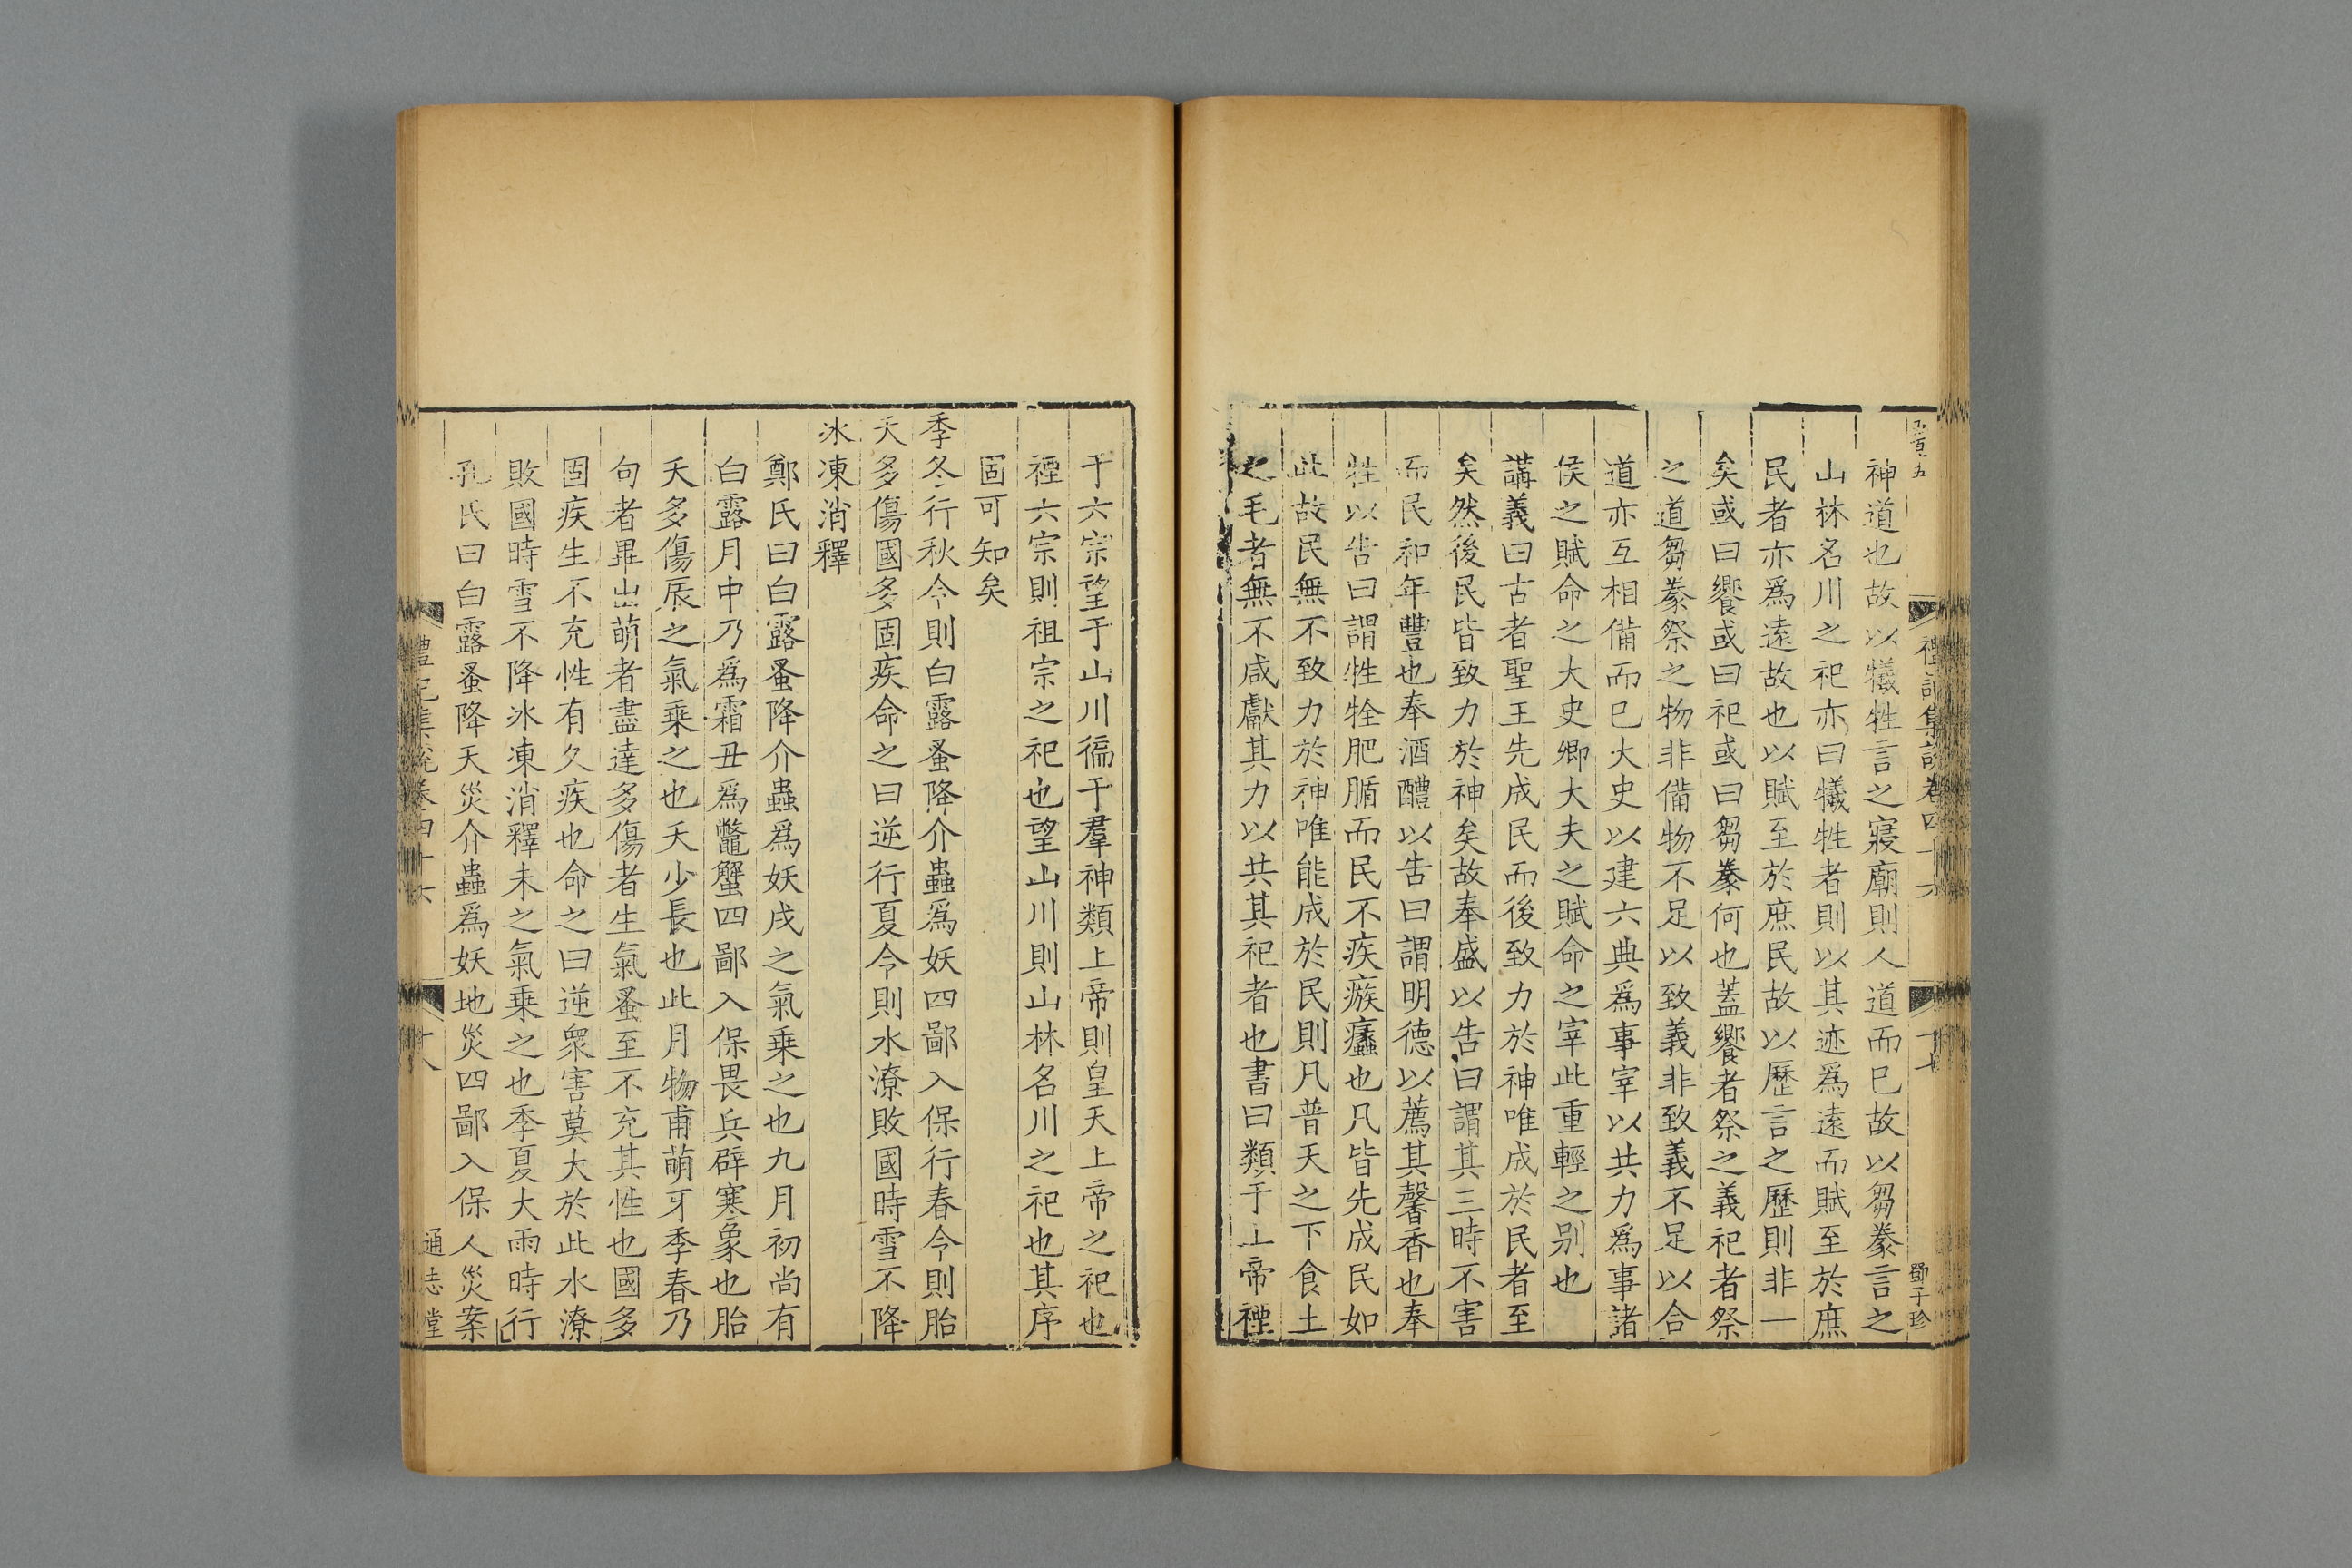 禮記集說卷四十六
十七
鄧子珍
神道也故以犧牲言之寢廟則人道而已故以芻豢言之
山林名川之祀亦曰犧牲者則以其迹爲遠而賦至於庶
民者亦爲遠故也以賦至於庶民故以歷言之歷則非一
矣或曰饗或曰祀或曰芻豢何也蓋饗者祭之義祀者祭
之道芻豢祭之物非備物不足以致義非致義不足以合
道亦互相備而已大史以建六典爲事宰以共力爲事諸
侯之賦命之大史卿大夫之賦命之宰此重輕之别也
講義曰古者聖王先成民而後致力於神唯成於民者至
矣然後民皆致力於神矣故奉盛以告曰謂其三時不害
而民和年豐也奉酒醴以告曰謂明德以薦其馨香也奉
牲以告曰謂牲牷肥腯而民不疾瘯蠡也凡皆先成民如
此故民無不致力於神唯能成於民則凡普天之下食土
之毛者無不咸獻其力以共其祀者也書曰類于上帝禋
于六宗望于山川徧于羣神類上帝則皇天上帝之祀也
禋六宗則祖宗之祀也望山川則山林名川之祀也其序
固可知矣
季冬行秋令則白露蚤降介蟲爲妖四鄙入保行春令則胎
夭多傷國多固疾命之曰逆行夏令則水潦敗國時雪不降
冰凍消釋
鄭氏曰白露蚤降介蟲爲妖戌之氣乗之也九月初尚有
白露月中乃爲霜丑爲鼈蟹四鄙入保畏兵辟寒象也胎
夭多傷辰之氣乗之也夭少長也此月物甫萌牙季春乃
句者畢出萌者盡達多傷者生氣蚤至不充其性也國多
固疾生不充性有久疾也命之曰逆衆害莫大於此水潦
敗國時雪不降冰凍消釋未之氣乗之也季夏大雨時行
孔氏曰白露蚤降天災介蟲爲妖地災四鄙入保人災案
禮記集說卷四十六
十八
通志堂